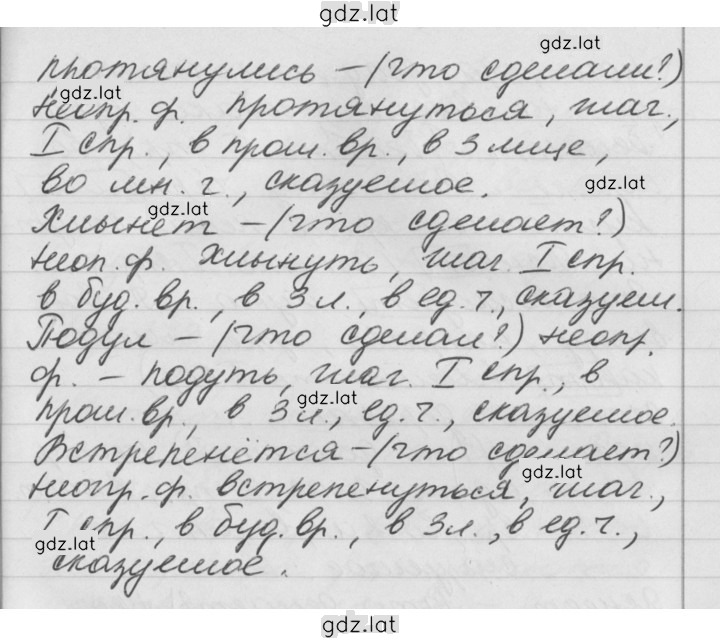 gdz.lat
gdz.lat
протянулись – (что сделали?)
gdz.lat
неопр. ф. протянуться, глаг.,
I спр., в прош. вр., в 3 лице,
во мн. ч., сказуемое.
gdz.lat
gdz.lat
Хлынет – (что сделает?)
неоп. ф. хлынуть, глаг. I спр.
в буд. вр., в 3 л., в ед. ч., сказуем.
Подул – (что сделал?) неопр.
ф. – подуть, глаг. I спр., в
gdz.lat
прош. вр., в 3 л., ед. ч., сказуемое.
Встрепенётся – (что сделает?)
gdz.lat
неопр. ф. встрепенуться, глаг.,
I спр., в буд. вр., в 3 л., в ед. ч.,
gdz.lat
сказуемое.
gdz.lat